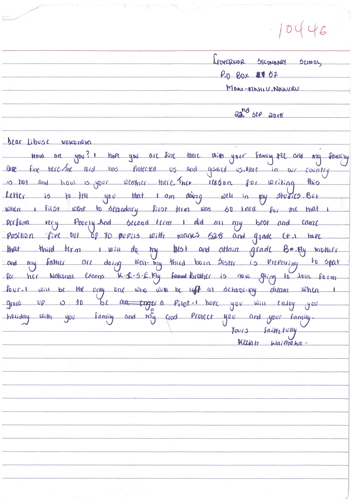 10446
SECONDARY SCHOOL,
P.O BOX 57
22nd SEP 2015
Dear Libuse
How are you? I hope you are fine there with your family. Me and my family
are fine here. the Lord has protected us and guided us. Here in our country
is hot and how is your weather there. The reason for writing this
letter is to tell you that I am doing well in my studies. But
when I first went to Secondary first term was so hard for me that I
perform very poorly. And second term I did all my best and came
position five out of 70 pupils with marks 525 and grade C+. I hope
that third term I will do my best and attain grade B+. My mother
and my father are doing well. my third born sister is preparing to seat
for her National Exams K.C.S.E. My brother is now going to join form
four. I will be the only one who will be left at school. my dream when I
grow up is to be a Pilot. I hope you will enjoy your
holiday with you family and my God Protect you and your family.
Yours faithfully